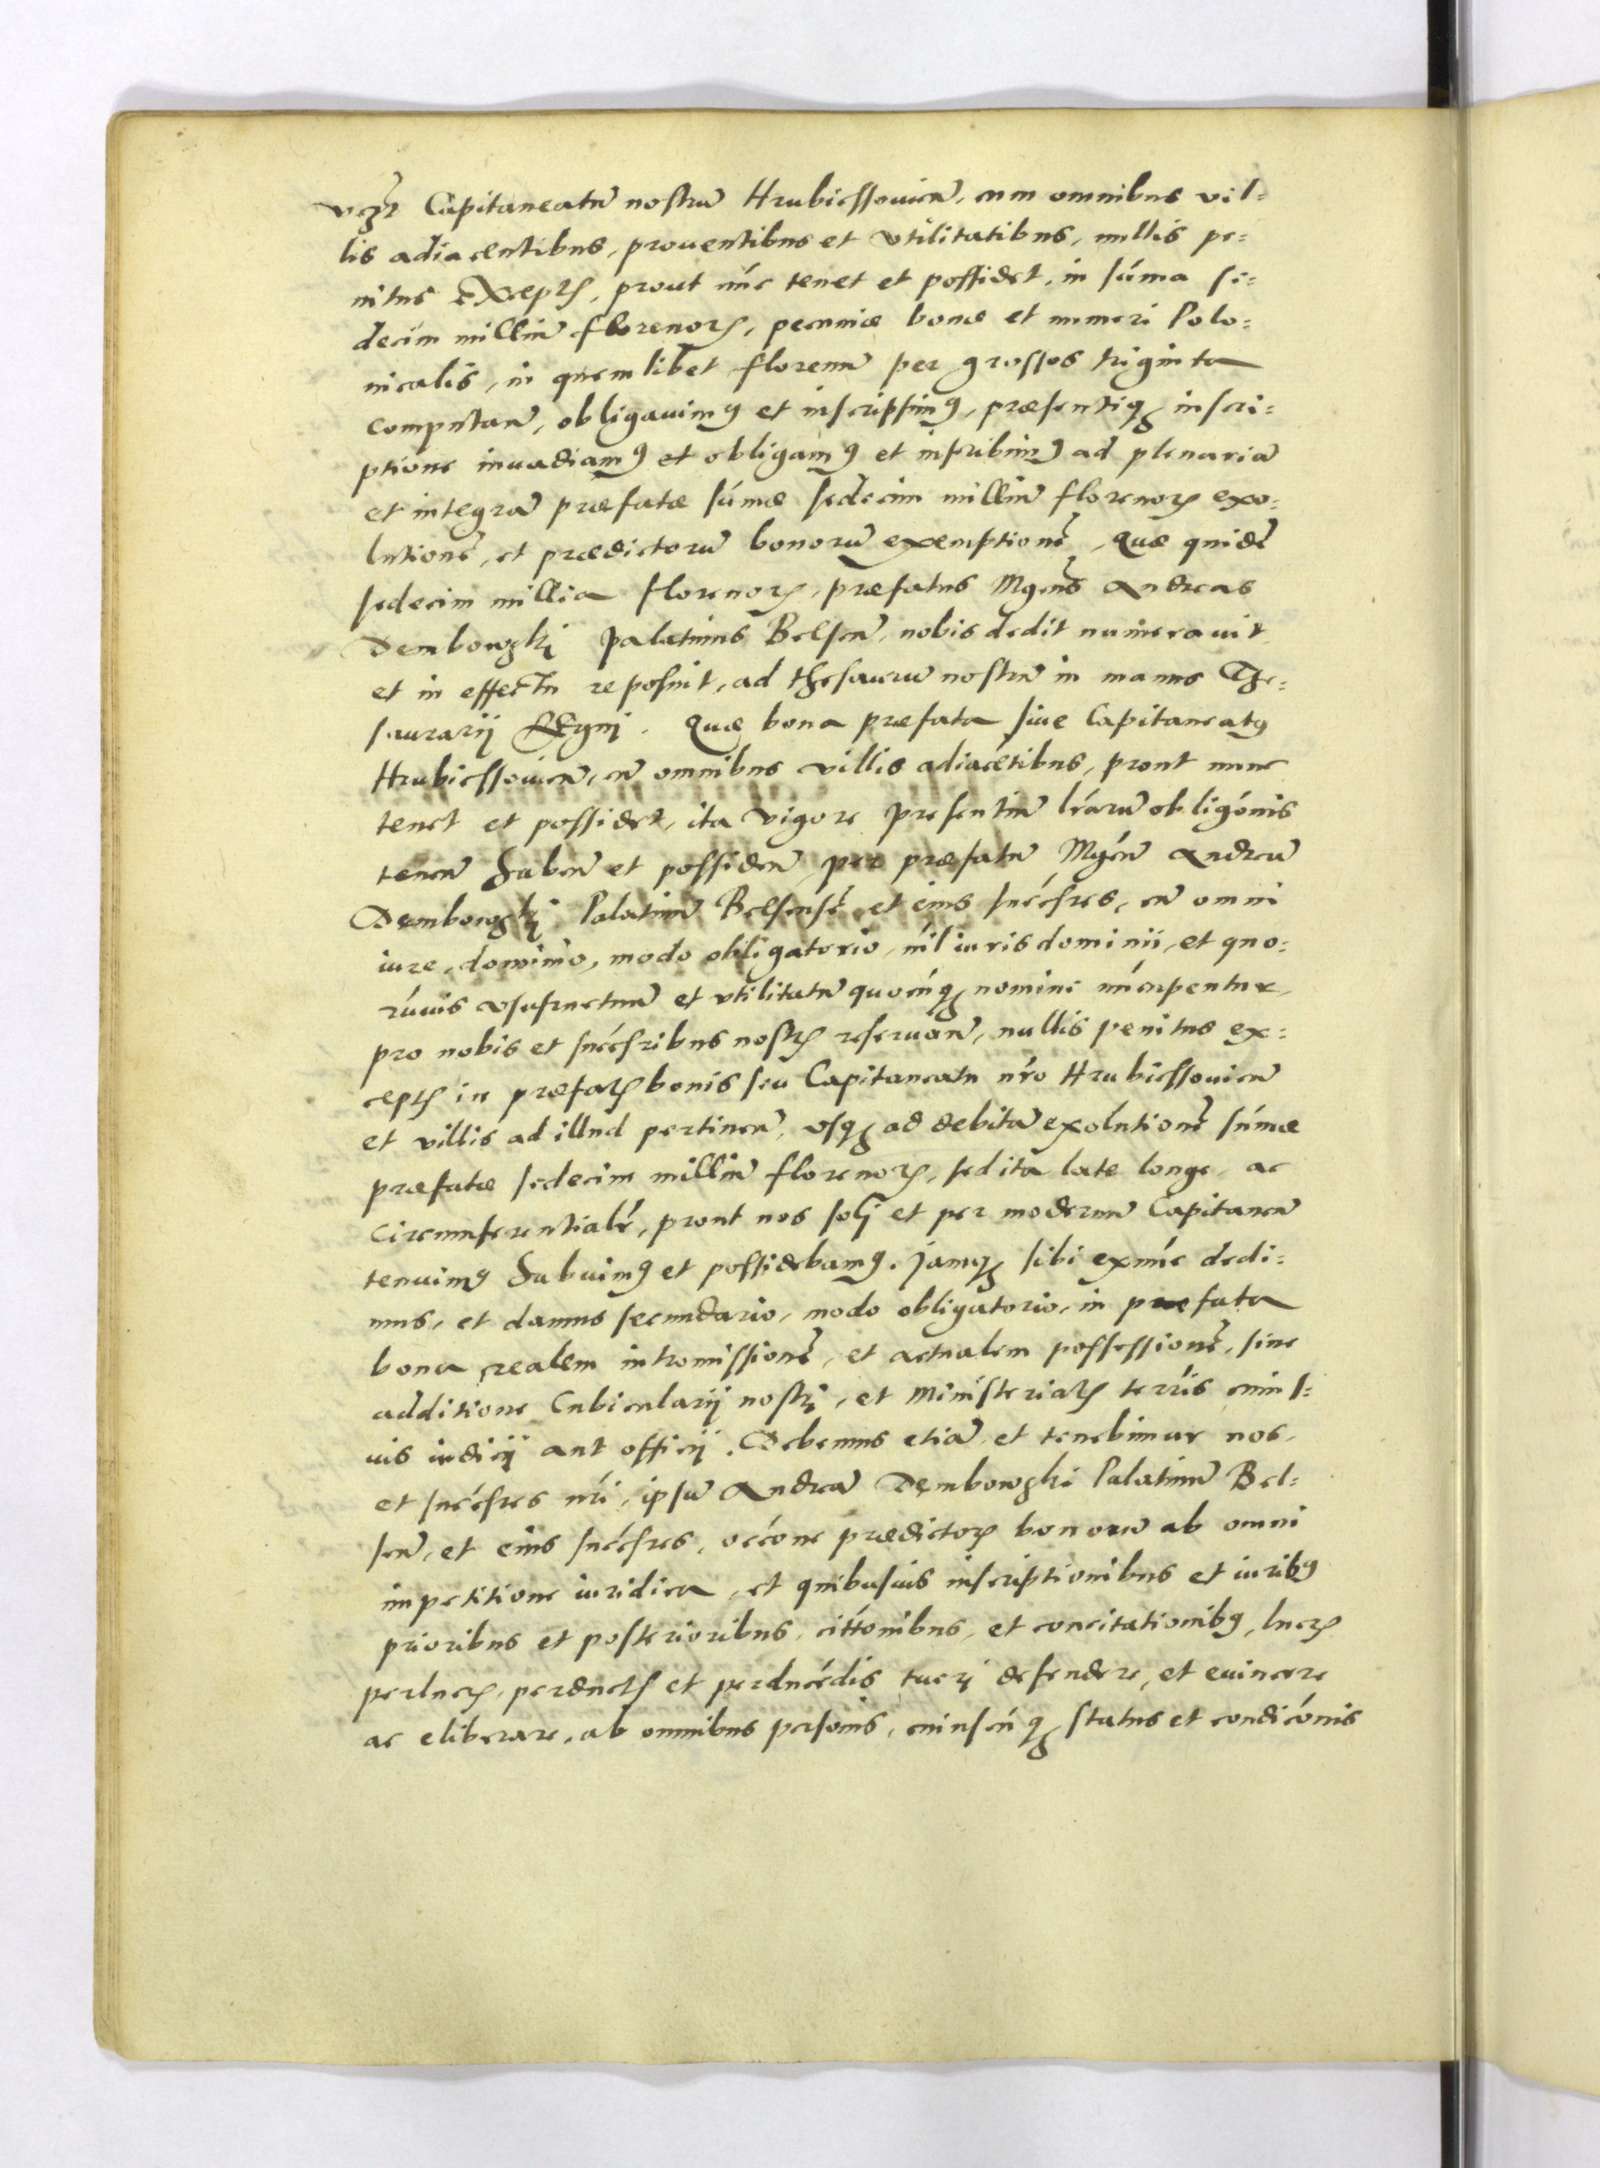 vꝫꝫ Capitaneatũ nostrũ Hrubiessouieñ, cum omnibus vil=
lis adiacentibus, prouentibus et vtilitatibus, nullis pe=
nitus exeptꝭ, prout nũc tenet et possidet, in sũma se=
decim milliũ florenorꝭ, pecuniæ bonæ et numeri Polo=
nicalis, in quemlibet florenũ per grossos triginta
computañ, obligauimꝰ et inscripsimꝰ, præsentiqꝫ inscri=
ptione inuadiamꝰ et obligamꝰ et inscribimꝰ ad plenariã
et integrã præfatæ sũmæ sedecim milliũ florenorꝭ exo=
lutionẽ, et prædictorũ bonorũ exemptionẽ, Quæ quidẽ
sedecim millia florenorꝭ, præfatus Mgcus Andreas
Dembowskj Palatinus Belseñ, nobis dedit numerauit
et in effectu reposuit, ad thesaurũ nostrũ in manus The=
saurarij Regnj. Quæ bona præfata siue Capitaneatꝰ
Hrubiessouieñ, cũ omnibus villis adiacẽtibus, prout nunc
tenet et possidet, ita vigore presentiũ lrarũ obligõnis
teneñ habeñ et possideñ, per præfatũ Mgcũ Andreã
Dembowskj Palatinũ Belsensẽ et eius succẽsres, cũ omni
iure, dominio, modo obligatorio, nil iuris dominii, et quo=
rũuis vsufructuũ et vtilitatũ quocũqꝫ nomine nũcupentur,
pro nobis et succẽsribus nostrꝭ reseruañ, nullis penitus ex=
ceptꝭ in præfatꝭ bonis seu Capitaneatu nro Hrubiessouieñ
et villis ad illud pertineñ, vsqꝫ ad debitã exolutionẽ sũmæ
præfatæ sedecim milliũ florenorꝭ, sed ita late longe, ac
circumferentialr, prout nos solj et per modernũ Capitaneũ
tenuimꝰ habuimꝰ et possidebamꝰ. Jamqꝫ sibi exnũc dedi=
mus, et damus secundario, modo obligatorio, in præfata
bona realem intromissionẽ, et actualem possessionẽ, sine
additione Cubicularij nostrj, et Ministerialꝭ terrîs cuius=
uis iudicij aut officij. Debemus etiã et tenebimur nos,
et succẽsres nri, ipsũ Andreã Dembowski Palatinũ Bel=
señ, et eius succẽsres, occõne prædictorꝭ bonorũ ab omni
impetitione iuridica, et quibusuis inscriptionibus et iuribꝰ
prioribus et posterioribus, cittõnibus, et concitationibꝰ, lucrꝭ
perlucrꝭ, perductꝭ et perducẽdis tuerj defendere, et euincere
ac eliberare, ab omnibus personis, cuiuscũqꝫ status et condicõnis